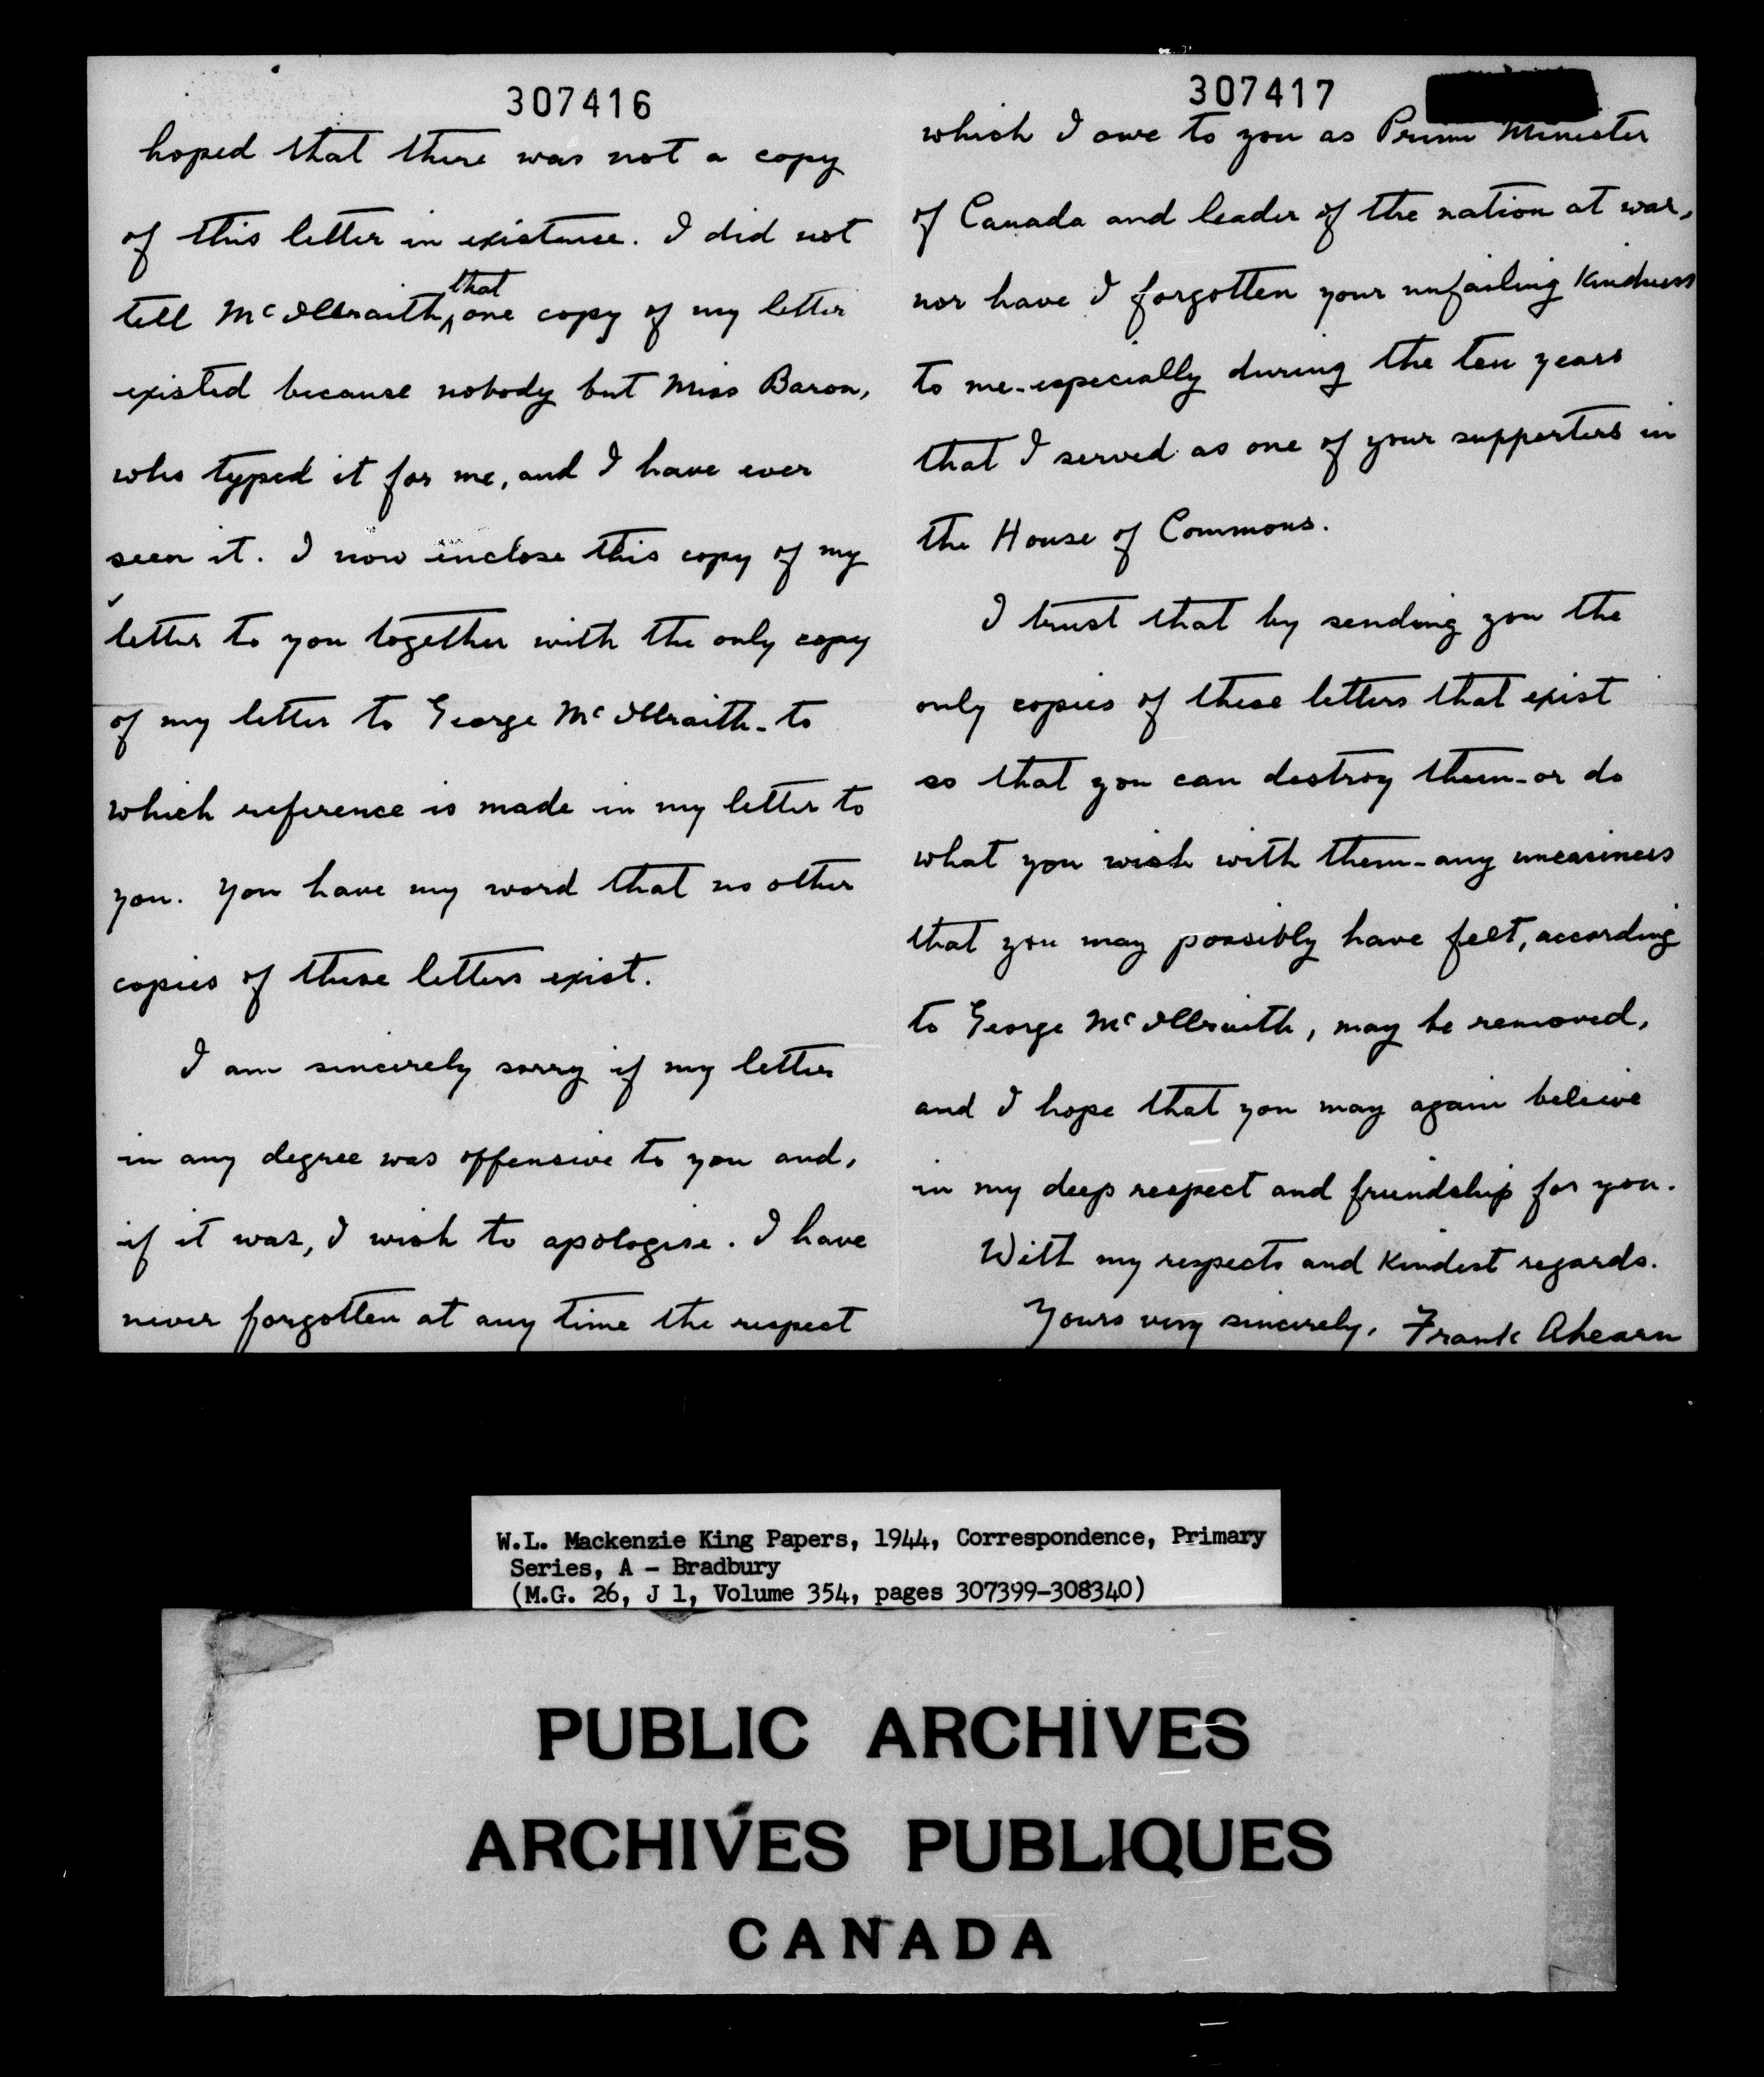 307416
hoped that there was not a copy
of this letter in existence. I did not
that
tell McIlbraith, ^ one copy of my letter
existed because nobody but Miss Baron,
who typed it for me, and I have ever
seen it. I now enclose this copy of my
letter to you together with the only copy
of my letter to George McIlbraith - to
which reference is made in my letter to
you. You have my word that no other
copies of these letters exist.
I am sincerely sorry if my letter
in any degree was offensive to you and,
if it was, I wish to apologise. I have
never forgotten at any time the respect
307417
which I owe to you as Prime Minister
of Canada and leader of the nation at war,
nor have I forgotten your unfailing kindness
to me - especially during the ten years
that I served as one of your supporters in
the House of Commons.
I trust that by sending you the
only copies of these letters that exist
so that you can destroy them - or do
what you wish with them - any uneasiness
that you may possibly have felt, according
to George McIlbraith, may be removed,
and I hope that you may again believe
in my deep respect and friendship for you.
With my respects and kindest regards.
Yours very sincerely, Frank Ahearn
W.L. Mackenzie King Papers, 1944, Correspondence, Primary
Series, A - Bradbury
(M.G. 26, J 1, Volume 354, pages 307399-308340)
PUBLIC ARCHIVES
ARCHIVES PUBLIQUES
CANADA